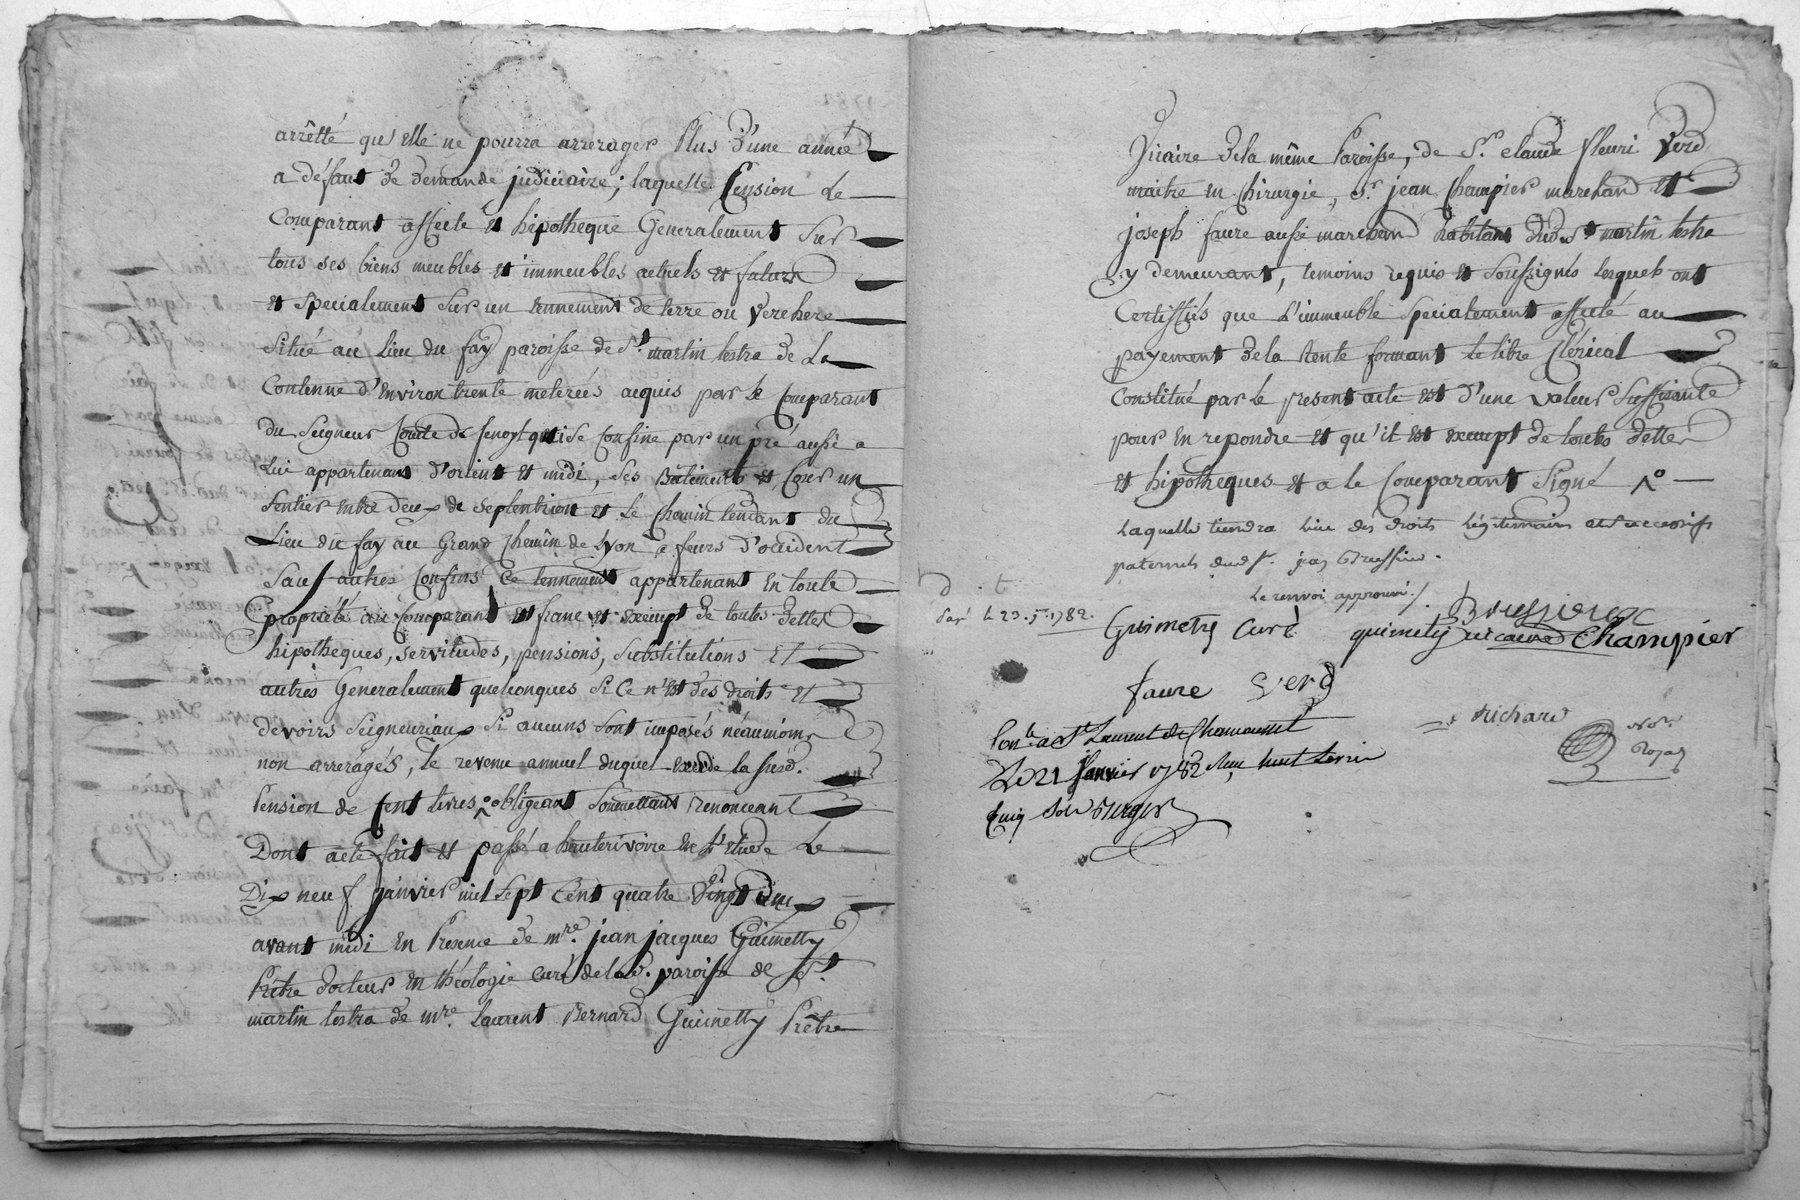 arrêtté qu'elle ne pourra arrerager Plus d'une année
a défaut de demande judiciaire; laquelle Pension Le
Comparant affecte et hipotheque Generalement Sur
tous ses biens meubles et immeubles actuels et futurs
et Specialement Sur un tennement de terre ou Verchere
Situé au Lieu du fay paroisse de St. martin lestra de La
Contenue d'Environ trente meterées acquis par le Comparant
du Seigneur Comte de qui Se Confine par un pré aussi a
Lui appartenant d'orient et midi, Ses Bâtiments et Cour un
Sentier entre deux de Septentrion et le Chemin tendant du
Lieu du fay au Grand Chemin de Lyon a feurs d'occident
Sauf autres Confins, Ce tennement appartenant En toute
Propriété au Comparant et franc et exempt de toutes dettes
hipotheques, servitudes, pensions, Substitutions Et
autres Generalement quelconques Si Ce n'est des droits et
devoirs Seigneuriaux Si aucuns Sont imposés néaumoins
non arreragés, le revenu annuel duquel excede la susd.
Pension de Cent livres obligeant Soumettant renonceant
Dont acte fait et passé a hauterivoire En L'Etude Le
Dix neuf janvier mil Sept Cent quatre Vingt deux
avant midi En Presence de mre. jean jacques Guimetty
Prêtre docteur en théologie curé de lad. paroisse de St.
martin lestra de mre. Laurent Bernard Guimetty Prêtre
Vicaire de la même Paroisse, de Sr. claude fleuri Verd
maitre en Chirurgie, Sr. jean Champier marchand et
joseph faure aussi marchand habitans dud. St. martin lestra
y demeurant, temoins requis et Soussignés lesquels ont
Certiffiés que L'immeuble Specialement affecté au
payement de la Rente formant le titre Clérical
Constitué par le present acte est d'une valeur Suffisante
pour En repondre et qu'il est exempt de toutes dettes
et hipotheques et a le Comparant Signé
Laquelle tiendra lieu des droits Légitimaires et Successifs
paternels dud Sr. jean
Le renvoi approuvé
Le 23. 1782.
Guimety Curé guimety vicaire Champier
faure Verd
Conlé a St Laurent de Chamousset
Le 21 Janvier 1782
Richard Nore.
Royal